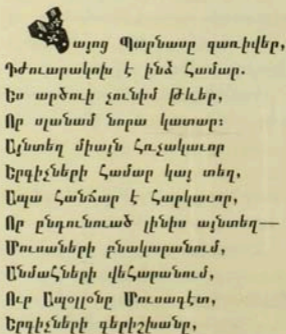 Հայոց Պարնասը զառիվեր,
Դժուարակոխ է ինձ համար.
Ես արծուի չունիմ թևեր,
Որ սլանամ նորա կատար։
Այնտեղ միայն հռչակաւոր
Երգիչների համար կայ տեղ,
Ապա հանճար է հարկաւոր,
Որ ընդունուած լինիս այնտեղ—
Մուսաների բնակարանում,
Անմահների վեհարանում,
Ուր Ապօլլօնը Մուսագէտ,
Երգիչների գերիշխանը,